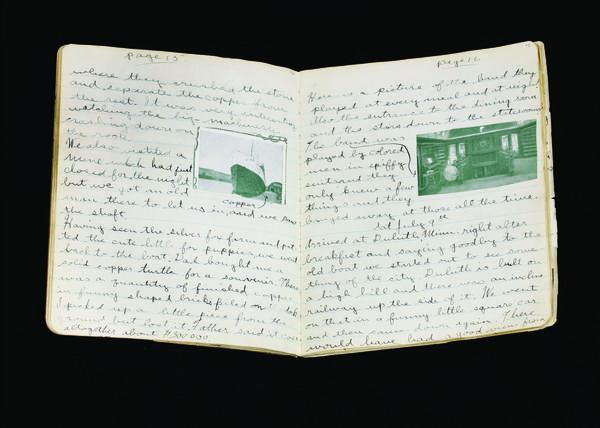 page 15
where they crushed the stone
and separate the copper from
the rest. It was very interesting
watching the big machinery
crashing down on
the rock.
We also visited a
mine which had just
closed for the night
but we got an old
man there to let us in, and we saw
the shaft.
copper
Having seen the silver fox farm and pet
ted the cute little fox puppies, we went
back to the boat. Dad bought me a
solid copper turtle for a souvenir. There
was a quantity of finished copper
in funny shaped bricks piled on dock
I picked up a little piece from the
ground but lost it. Father said it cost
altogether about
page 16
Here is a picture of the band they
played at every meal and at night
Also the entrance to the dining room
and the stairs down to the staterooms
The band was
played by colored
men in spiffy
suits and they
only knew a few
things and they
banged away at those all the time.
Sat July
Arrived at Duluth, Minn. right after
breakfast and saying goodby to the
old boat we started out to see some
thing of the city. Duluth is built on
a high hill and there was an incline
railway up the side of it. We went
on that in a funny little square car
and then came down again. There
would have been a good view from